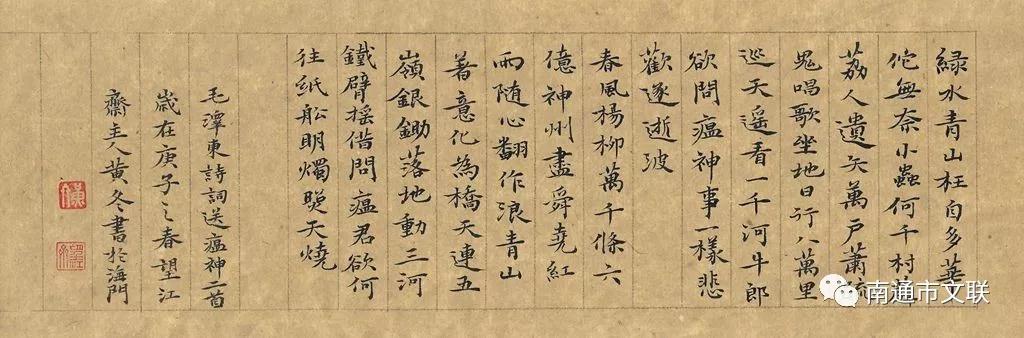 綠水青山枉自多華
佗無奈小蟲何千村
荔人遺矢萬戶蕭疏
鬼唱歌坐地日行八萬里
巡天遥看一千河牛郎
欲問瘟神事一樣悲
歡逐逝波
春風楊柳萬千條六
億神州盡舜堯紅
雨随心翻作浪青山
著意化為橋天連五
嶺銀鋤落地動三河
鐵臂摇借問瘟君欲何
往紙舩明燭照天燒
毛澤東詩詞送瘟神二首
歲在庚子之春望江
齋主人黃冬書於海門
南通市文联